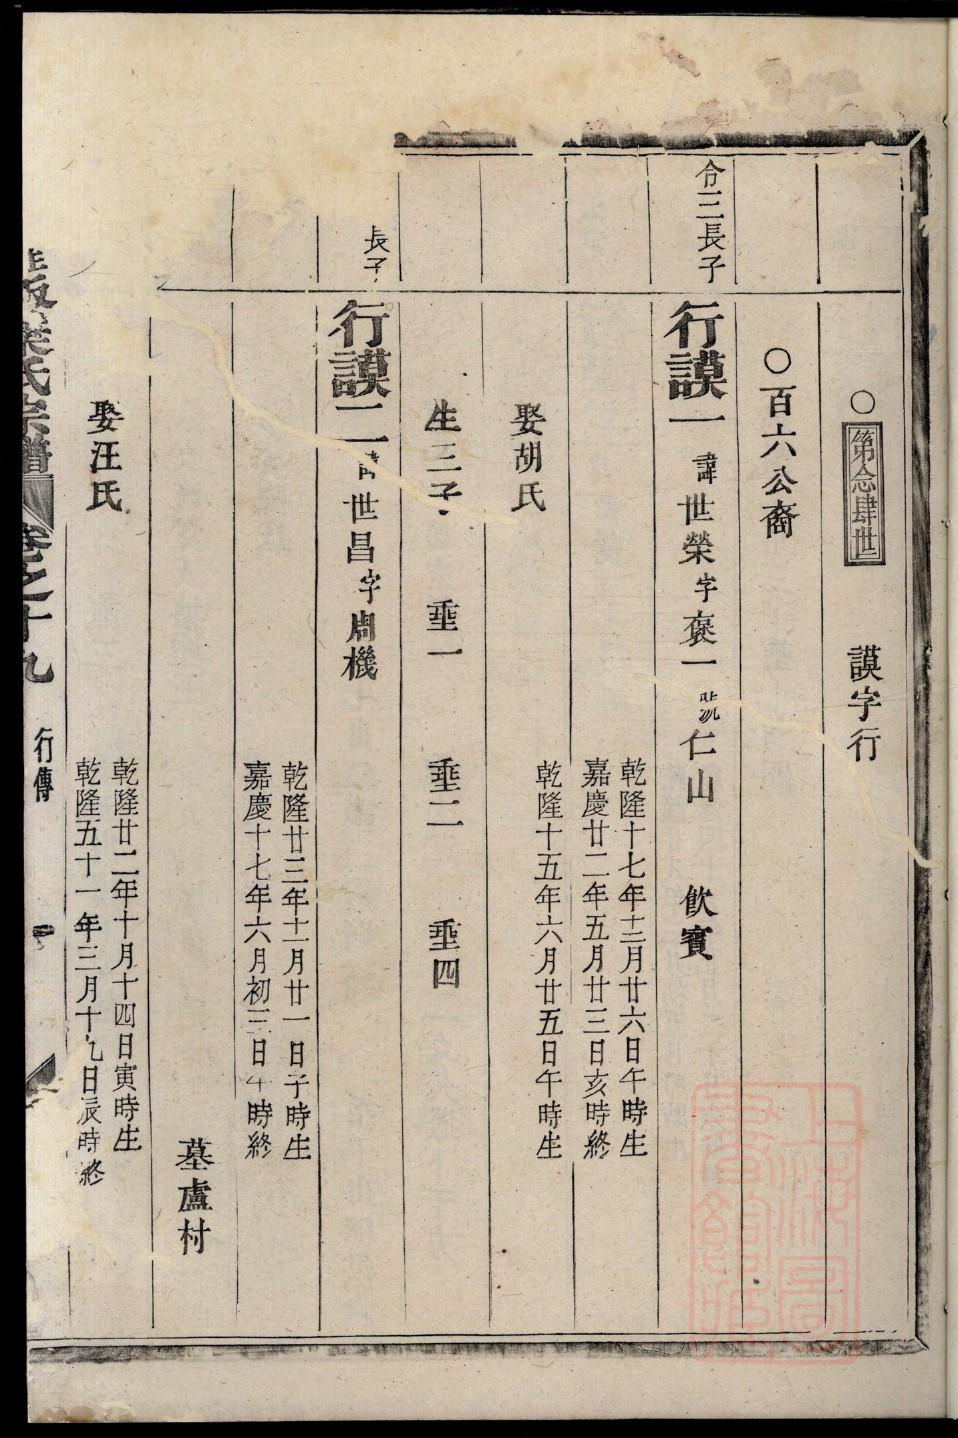 ○第念肆世 謨字行
○百六公裔
合三長子
行謨一 諱世榮字褒一號仁山 飲賓
乾隆十七年十二月廿六日午時生
嘉慶廿二年五月廿三日亥時終
娶胡氏
乾隆十五年六月廿五日午時生
生三子 垂一 垂二 垂四
長子
行謨二 諱世昌字周機
乾隆廿三年十一月廿一日子時生
嘉慶十七年六月初三日午時終
墓盧村
娶汪氏
乾隆廿二年十月十四日寅時生
乾隆五十一年三月十九日辰時終
氏宗譜 卷之十九 行傳
上海圖書館藏